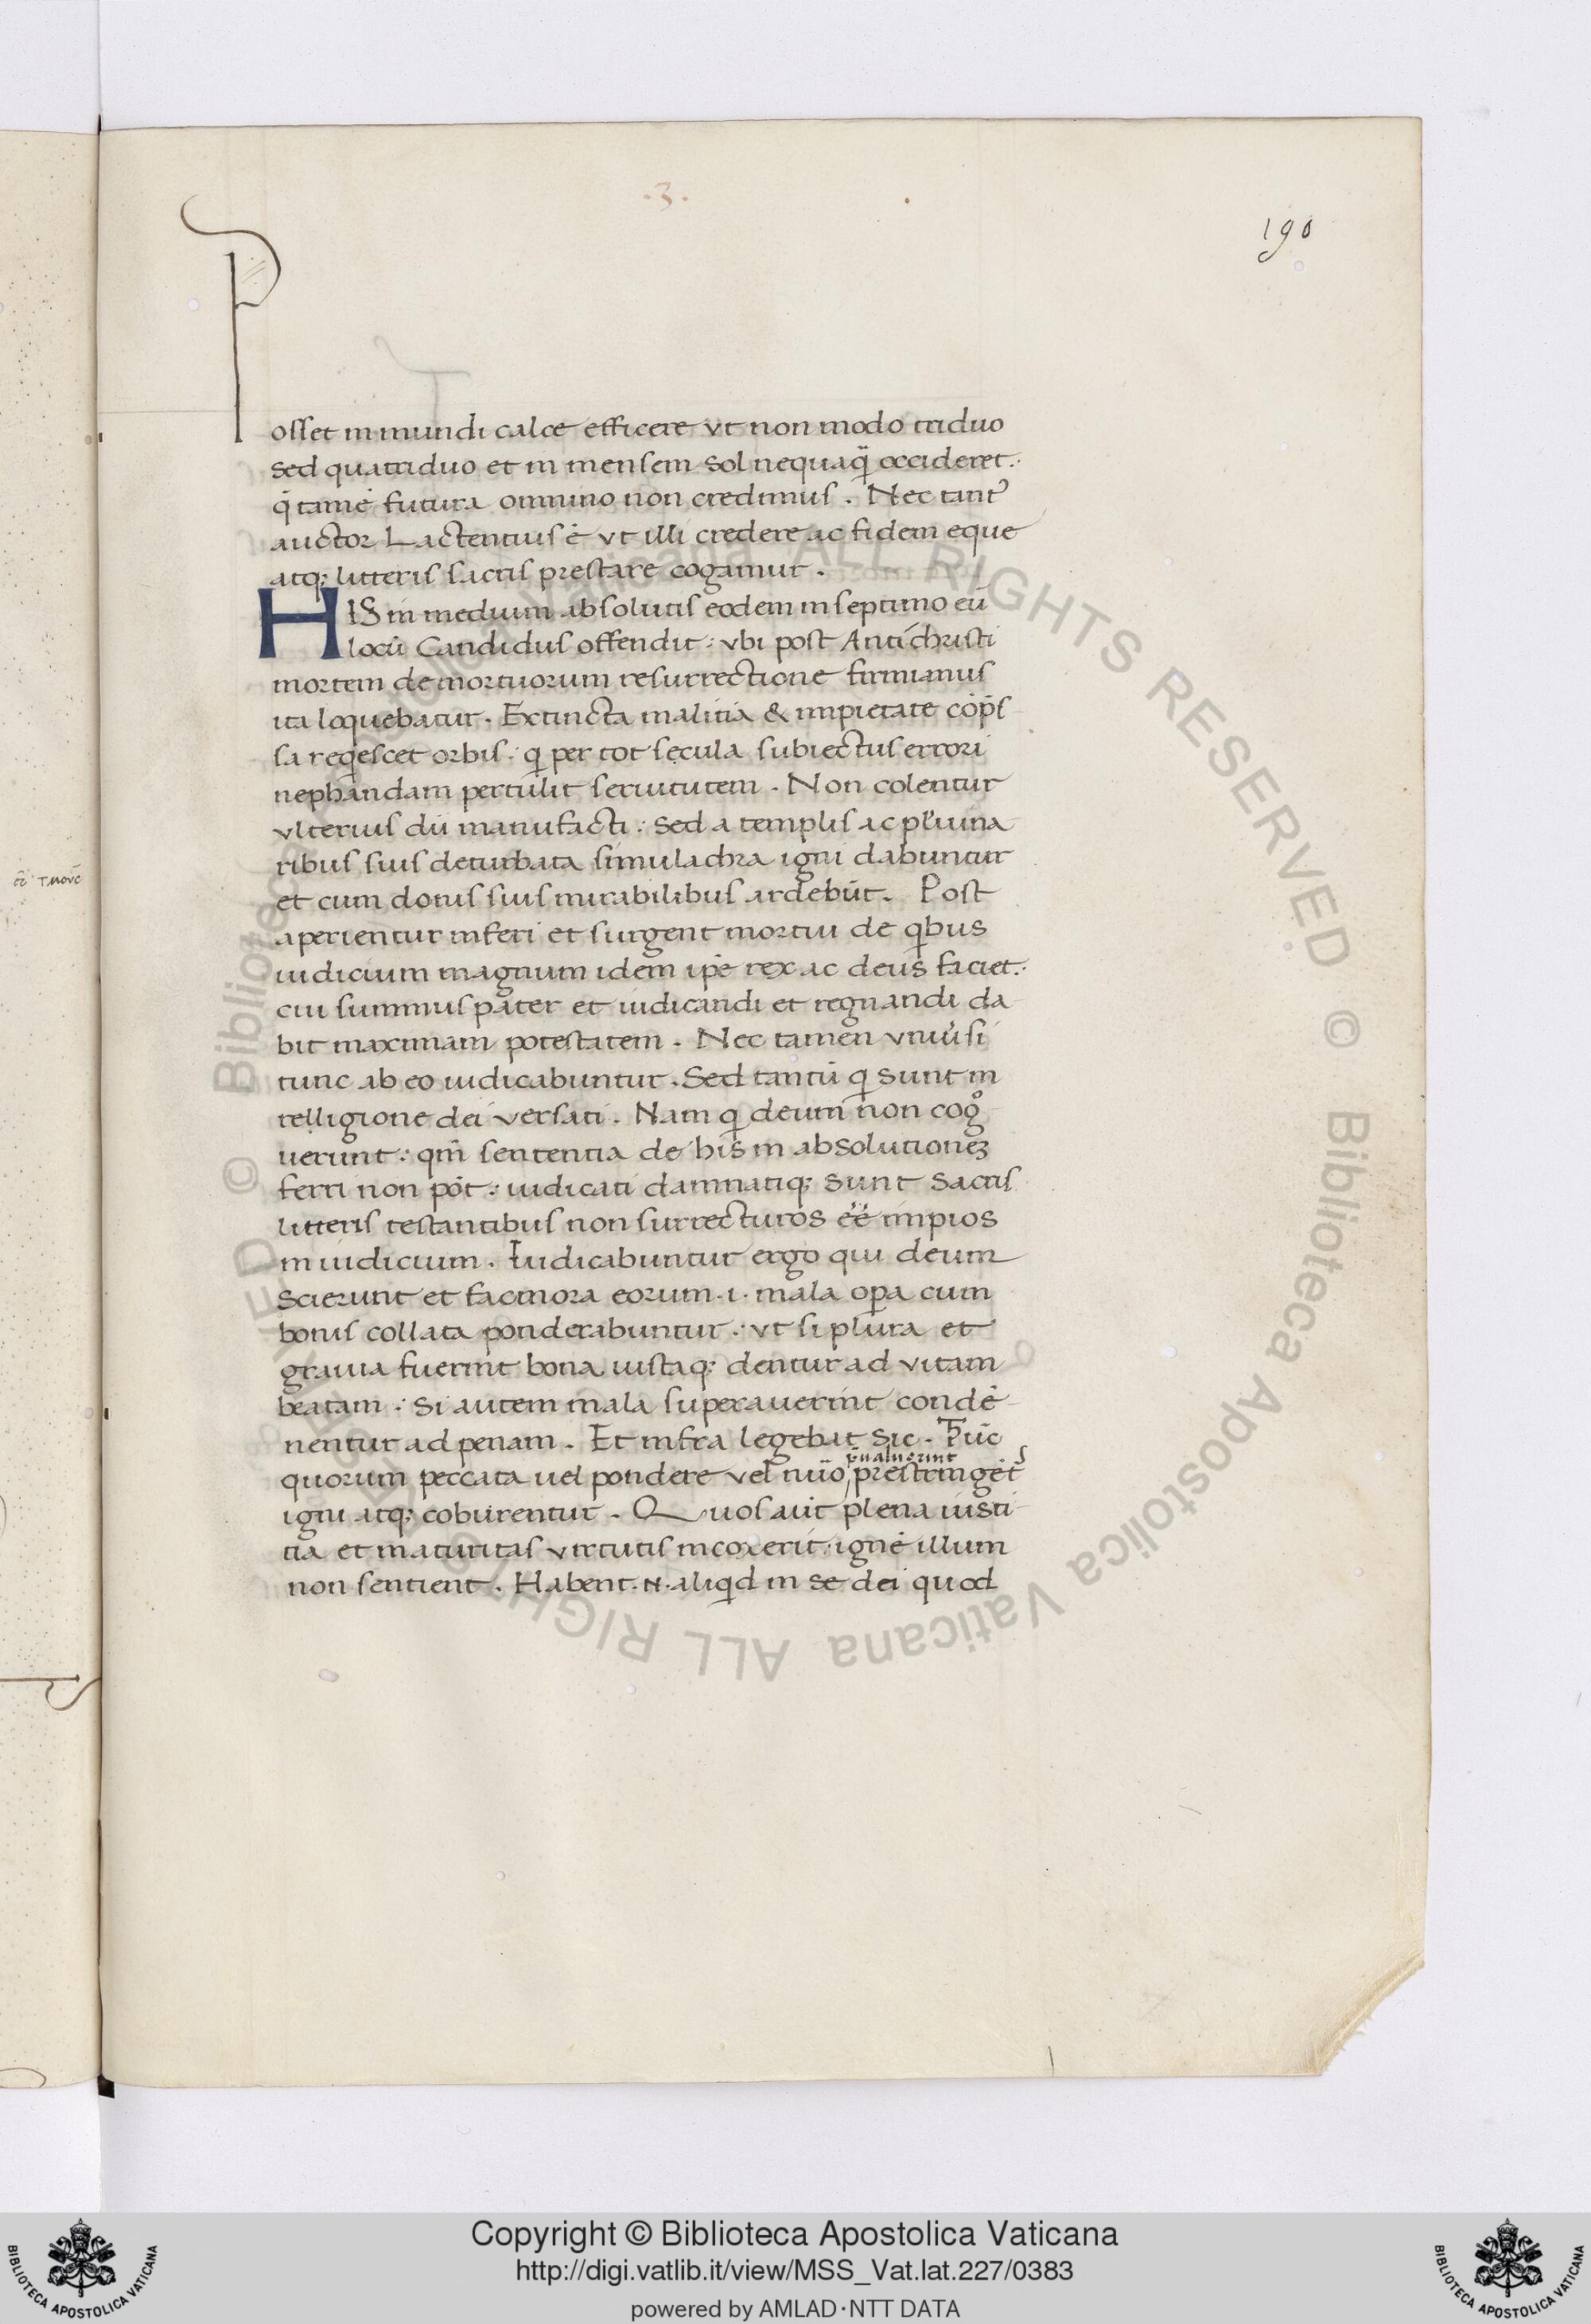 .3.
190
Posset in mundi calce efficere vt non modo triduo
sed quatriduo et in mensem sol nequaq̃ occideret.
q̄ tamē futura omnino non credimus. Nec tant᷒
auctor Lactentius ē vt illi credere ac fidem eque
atq; litteris sacris prestare cogamur.
HIS in medium absolutis eodem in septimo eū
locū Candidus offendit: vbi post Antichristi
mortem de mortuorum resurrectione firmianus
ita loquebatur. Extincta malitia & impietate cōp̄s
sa reqescet orbis: q per tot sęcula subiectus errori
nephandam pertulit seruitutem. Non colentur
vlterius dii manufacti: sed a templis ac pluuina
ribus suis deturbata simulachra igni dabuntur
et cum donis suis mirabilibus ardebūt. Post
aperientur inferi et surgent mortui de qbus
iudicium magnum idem ip̄e rex ac deus faciet:
cui summus pater et iudicandi et regnandi da
bit maximam potestatem. Nec tamen vniu̓si
tunc ab eo iudicabuntur. Sed tantū q sunt in
relligione dei versati. Nam q deum non cogͦ
uerunt: qm̄ sententia de his in absolutionez
ferri non pōt: iudicati damnatiq; sunt sacris
litteris testantibus non surrecturos ēē impios
in iudicium. Iudicabuntur ergo qui deum
scierunt et facinora eorum .i. mala opa cum
bonis collata ponderabuntur: vt si plura et
grauia fuerint bona iustaq; dentur ad vitam
beatam: Si autem mala superauerint condē
nentur ad penam. Et infra legebat sic. Tūc
p̄ualuerint
quorum peccata uel pondere vel nūo prestringēt᷒
igni atq; coburentur. Quos aūt plena iusti
tia et maturitas virtutis incoxerit: ignē illum
non sentient. Habent .N. aliqd in se dei quod
Copyright © Biblioteca Apostolica Vaticana
http://digi.vatlib.it/view/MSS_Vat.lat.227/0383
powered by AMLAD·NTT DATA
BIBLIOTECA APOSTOLICA VATICANA
BIBLIOTECA APOSTOLICA VATICANA
© Biblioteca Apostolica Vaticana ALL RIGHTS RESERVED © Biblioteca Apostolica Vaticana ALL RIGHTS RESERVED